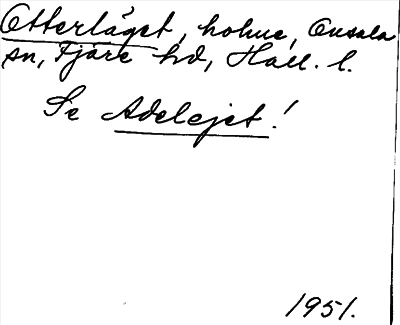 Otterläget, holme, Onsala
sn, Fjäre hd, Hall. l.
Se Adelejet!
1951.